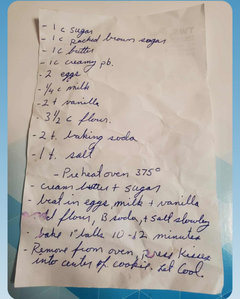 - 1 c sugar
- 1 c packed brown sugar
- 1 c butter
- 1 c creamy pb.
- 2 eggs
- 1/4 c milk
- 2 t vanilla
- 3 1/2 c flour.
- 2 t. baking soda
- 1 t. salt
- Preheat oven 375°
- cream butter + sugar
- beat in eggs milk + vanilla
flour, B soda, + salt slowly
- bake 1" balls 10-12 minutes
- Remove from oven, press kisses
into center of cookie. Let cool.